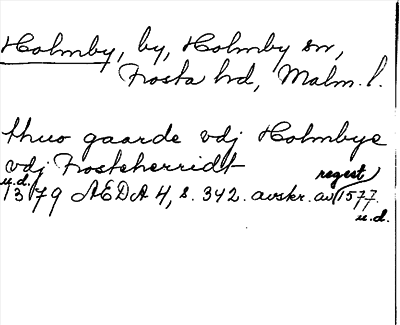 Holmby, by, Holmby sn,
Frosta hd, Malm. l.
thuo gaarde vdj Holmbye
vdj Frosteherridt
u.d. 1379 AEDA 4, s. 342. avskr. av regest 1577.
u.d.